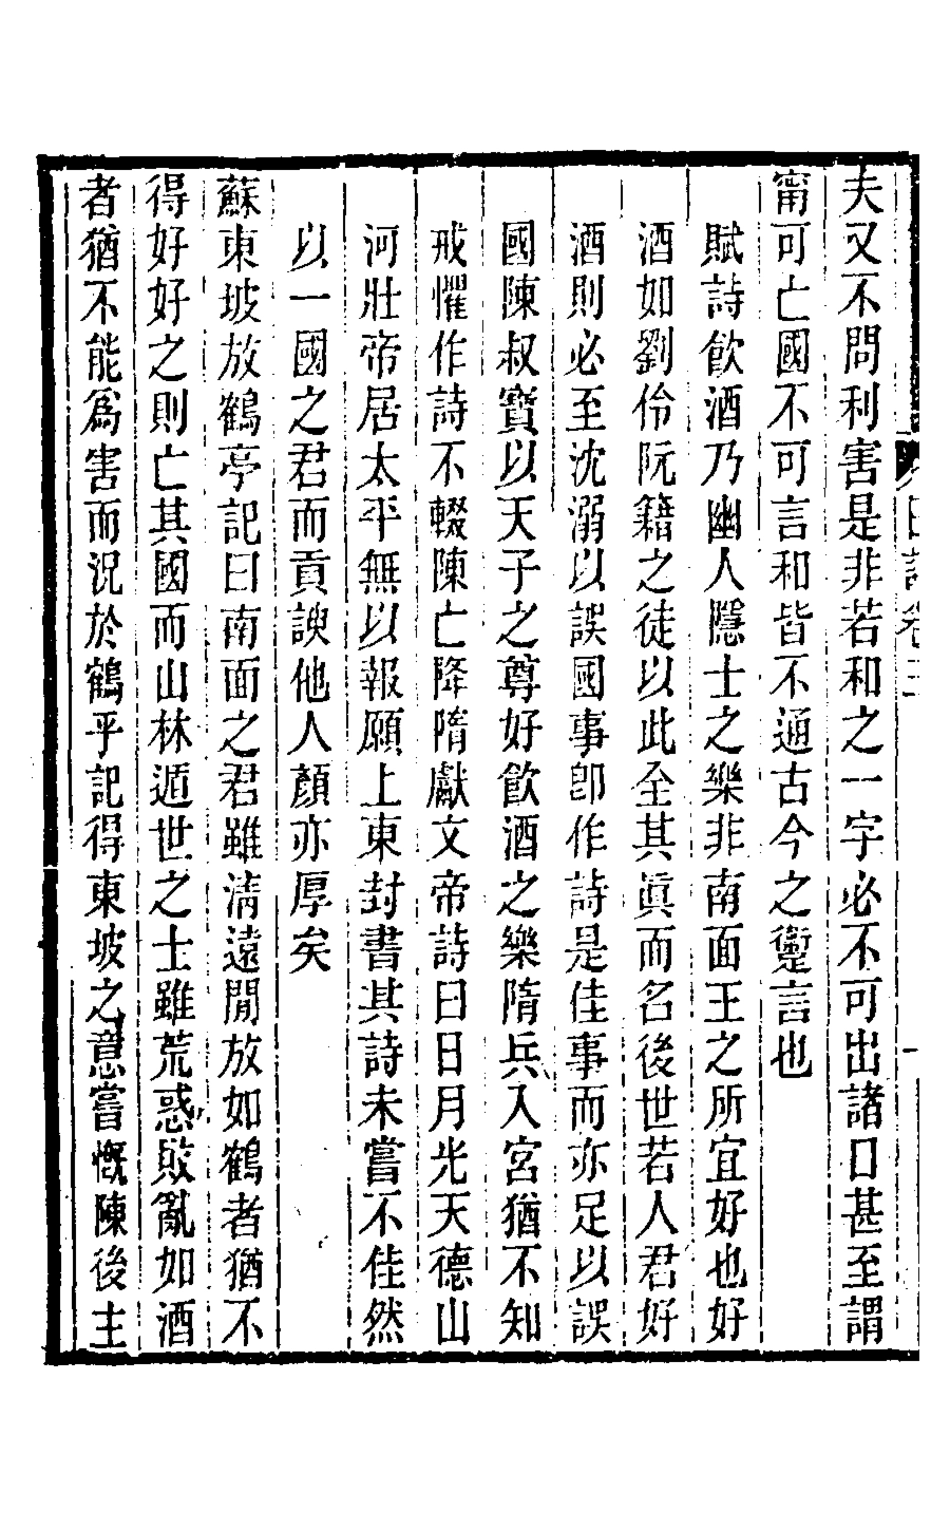 夫又不問利害是非若和之一字必不可出諸口甚至謂
甯可亡國不可言和皆不通古今之躗言也
賦詩飮酒乃幽人隱士之樂非南面王之所宜好也好
酒如劉伶阮籍之徒以此至其眞而名後世若人君好
酒則必至沈溺以誤國事卽作詩是佳事而亦足以誤
國陳叔寶以天子之尊好飮酒之樂隋兵入宮猶不知
戒懼作詩不輟陳亡降隋獻文帝詩曰日月光天德山
河壯帝居太平無以報願上東封書其詩未嘗不佳然
以一國之君而貢諛他人顏亦厚矣
蘇東坡放鶴亭記曰南面之君雖淸遠閒放如鶴者猶不
得好好之則亡其國而山林遁世之士雖荒惑敗亂如酒
者猶不能爲害而況於鶴乎記得東坡之意嘗慨陳後主